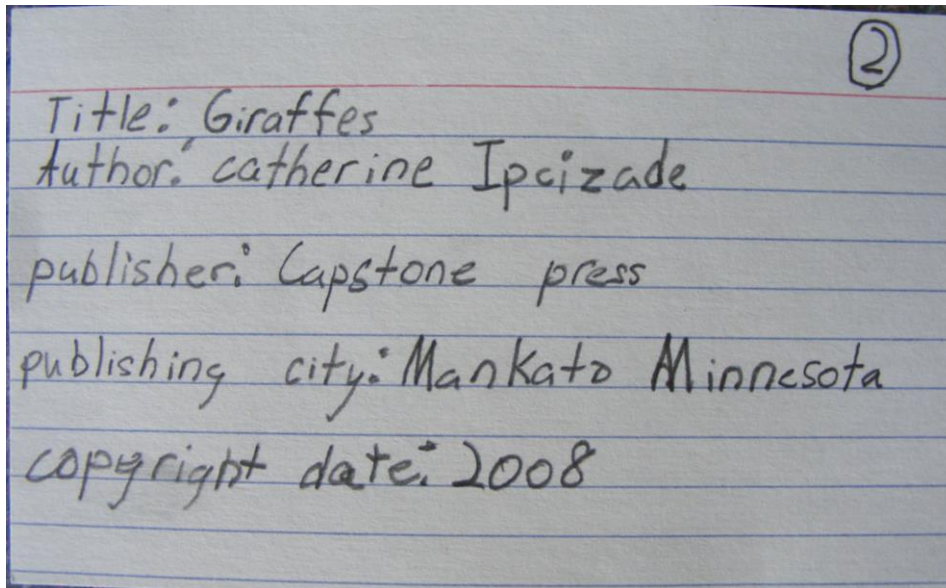 2
Title: Giraffes
Author: catherine Ipcizade
publisher: Capstone press
publishing city: Mankato Minnesota
copyright date: 2008